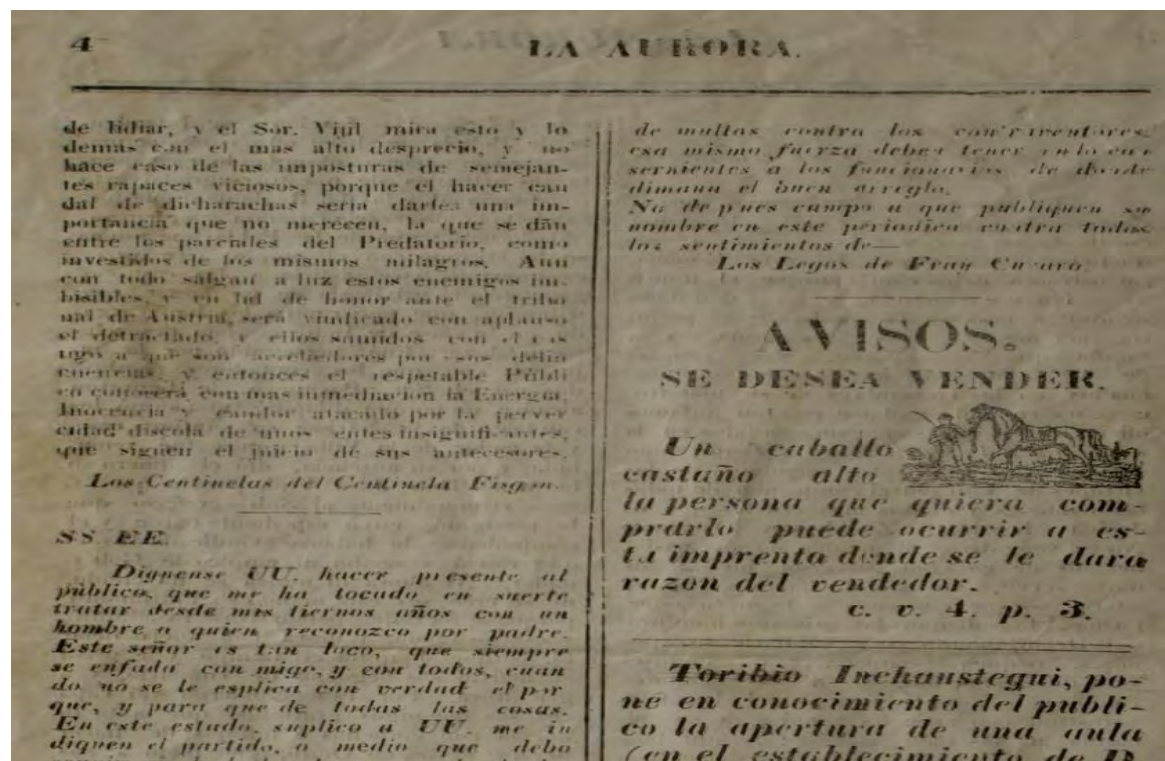 4
LA AURORA.
de lidiar, y el Sor. Vijil mira esto y lo
demas con el mas alto desprecio, y no
hace caso de las imposturas de semejan-
tes rapaces viciosos, porque el hacer cau
dal de dicharachas seria darles una im-
portancia que no merecen, la que se dán
entre los parciales del Predatorio, como
investidos de los mismos milagros. Aun
con todo salgan a luz estos enemigos im-
bisibles, y en lid de honor ante el tribu
nal de Austria, será vindicado con aplauso
el detractado, y ellos sumidos con el cas
tigo a que son acrehedores por esos delin
cuencias, y entonces el respetable Públi
co conocerá con mas inmediacion la Energia,
Inocencia y candor atacado por la perver
cidad discola de unos entes insignificantes,
que siguen el juicio de sus antecesores.
Los Centinelas del Centinela Fisgon.
SS. EE.
Dignense UU. hacer presente al
público, que me ha tocado en suerte
tratar desde mis tiernos años con un
hombre a quien reconozco por padre.
Este señor es tan loco, que siempre
se enfada con migo, y con todos, cuan
do no se le esplica con verdad el por
que, y para que de todas las cosas.
En este estado, suplico a UU. me in
diquen el partido, o medio que debo
de multas contra los contraventores,
esa misma fuerza deben tener
a los funcionarios de donde
dimana el buen arreglo.
No de pues campo a que publiquen su
nombre en este periodico contra todos
los sentimientos de—
Los Legos de Fray
AVISOS.
SE DESEA VENDER.
Un caballo
castaño alto
la persona que quiera com-
prarlo puede ocurrir a es-
ta imprenta donde se le dara
razon del vendedor.
c. v. 4. p. 3.
Toribio Inchaustegui, po-
ne en conocimiento del publi-
co la apertura de una aula
(en el establecimiento de D.